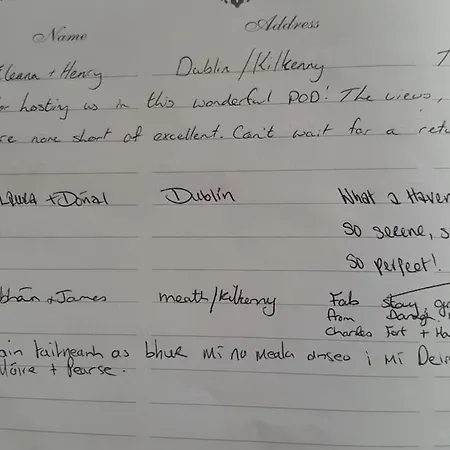 Name Address
+ Henry Dublin/Kilkenny T
for hosting us in this wonderful POD! The views,
none short of excellent. Can't wait for a retu
LAURA + Dónal Dublin What a Haven
so serene, s
so perfect!
+ James meath/Kilkenny Fab stay
from
Charles Fort + Ha
taitneamh as bhur mí na meala anseo i mí Deir
Máire + Pearse.